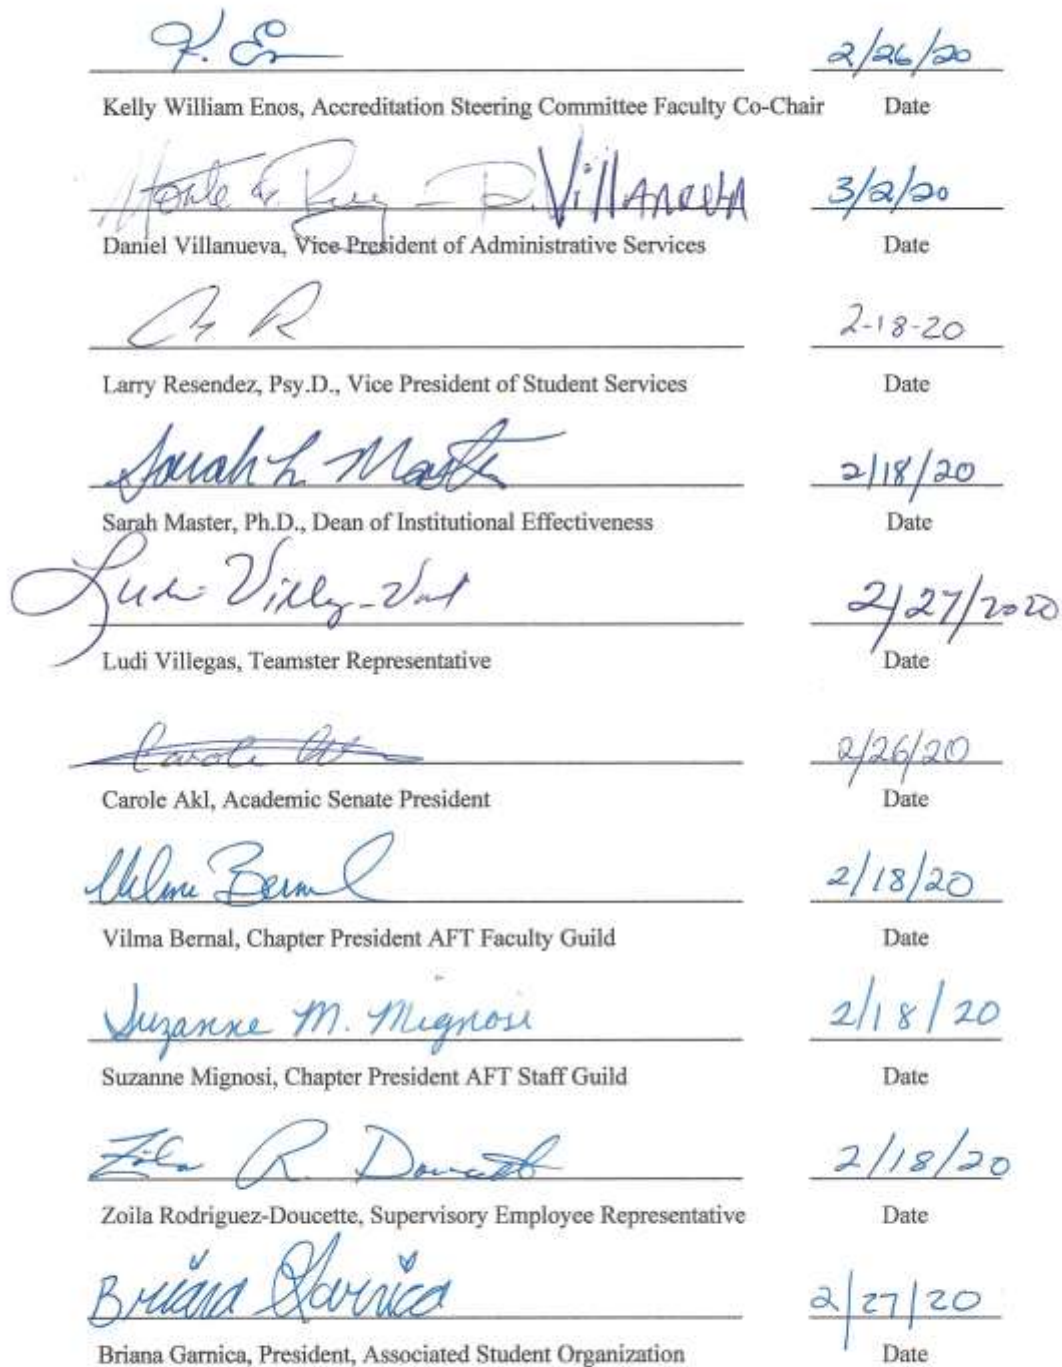 K. En 2/26/20
Kelly William Enos, Accreditation Steering Committee Faculty Co-Chair Date
D. Villanueva 3/2/20
Daniel Villanueva, Vice President of Administrative Services Date
2-18-20
Larry Resendez, Psy.D., Vice President of Student Services Date
Sarah L. Master 2/18/20
Sarah Master, Ph.D., Dean of Institutional Effectiveness Date
Ludi 2/27/2020
Ludi Villegas, Teamster Representative Date
Carole 2/26/20
Carole Akl, Academic Senate President Date
Vilma Bernal 2/18/20
Vilma Bernal, Chapter President AFT Faculty Guild Date
Suzanne M. Mignosi 2/18/20
Suzanne Mignosi, Chapter President AFT Staff Guild Date
R. 2/18/20
Zoila Rodriguez-Doucette, Supervisory Employee Representative Date
Briana Garnica 2/27/20
Briana Garnica, President, Associated Student Organization Date